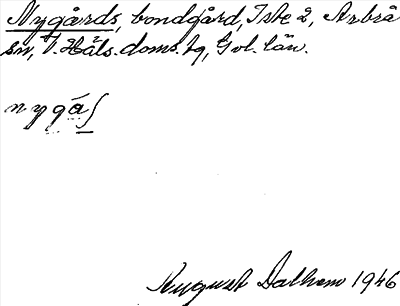 Nygårds, bondgård, Iste 2, Arbrå
sn, V. Häls. doms. hg, Gvl. län.
nygåʃ
August Dalhem 1946